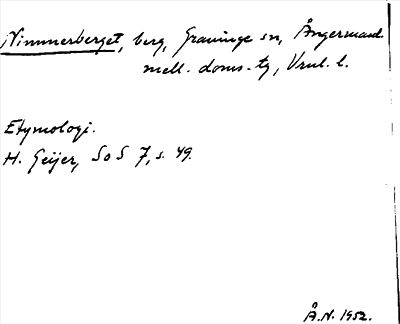 Nimmerberget, berg, Graninge sn, Ångermanl.
mell. doms. tg, Vrnl. l.
Etymologi.
H. Geijer, SoS 7, s. 49.
Å.N. 1952.